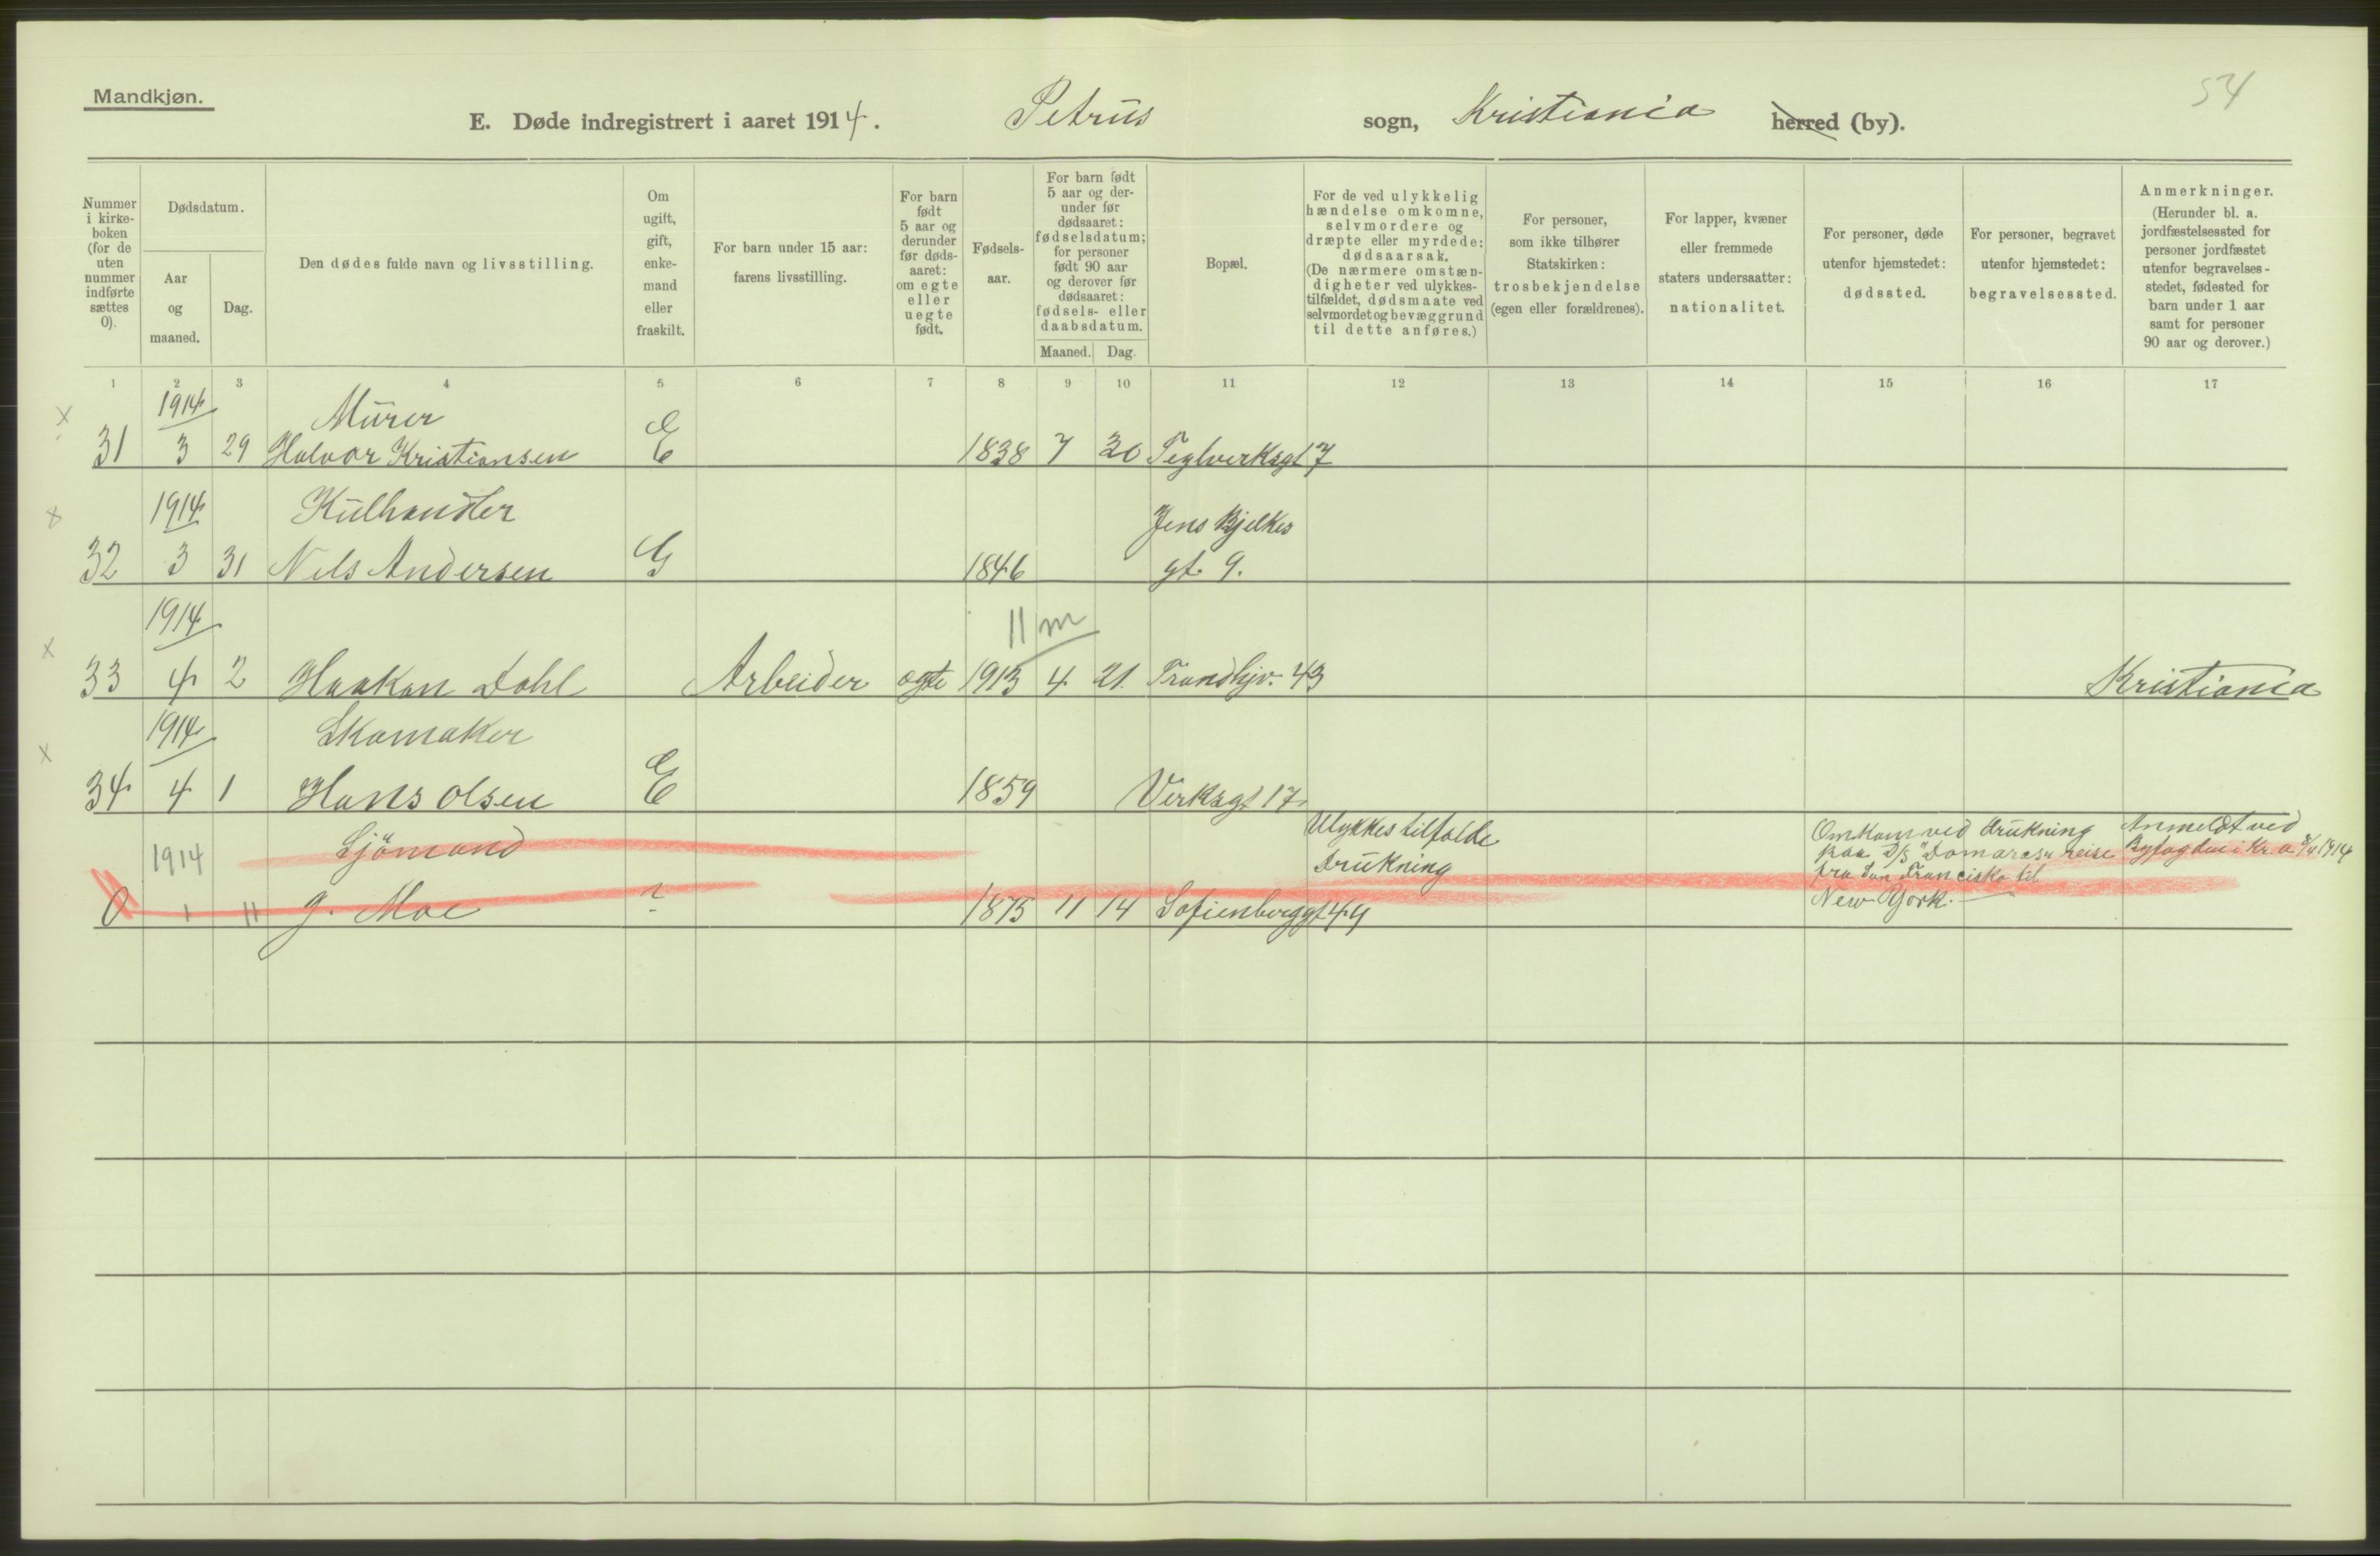 Mandkjøn.
54
E. Døde indregistrert i aaret 1914. Petrus sogn, Kristiania herred (by).
Nummer
i kirke-
boken
(for de
uten
nummer
indførte
sættes
0).
Dødsdatum.
Aar
og
maaned.
Dag.
Den dødes fulde navn og livsstilling.
Om
ugift,
gift,
enke-
mand
eller
fraskilt.
For barn under 15 aar:
farens livsstilling.
For barn
født
5 aar og
derunder
før døds-
aaret:
om egte
eller
uegte
født.
Fødsels-
aar.
For barn født
5 aar og der-
under før
dødsaaret:
fødselsdatum;
for personer
født 90 aar
og derover før
dødsaaret:
fødsels- eller
daabsdatum.
Maaned. Dag.
Bopæl.
For de ved ulykkelig
hændelse omkomne,
selvmordere og
dræpte eller myrdede:
dødsaarsak.
(De nærmere omstæn-
digheter ved ulykkes-
tilfældet, dødsmaate ved
selvmordet og bevæggrund
til dette anføres.)
For personer,
som ikke tilhører
Statskirken:
trosbekjendelse
(egen eller forældrenes).
For lapper, kvæner
eller fremmede
staters undersaatter:
nationalitet.
For personer, døde
utenfor hjemstedet:
dødssted.
For personer, begravet
utenfor hjemstedet:
begravelsessted.
Anmerkninger.
(Herunder bl. a.
jordfæstelsessted for
personer jordfæstet
utenfor begravelses-
stedet, fødested for
barn under 1 aar
samt for personer
90 aar og derover.)
1 2 3 4 5 6 7 8 9 10 11 12 13 14 15 16 17
x 1914 Mürer
31 3 29 Halvor Kristiansen E 1838 7 20 Teglverksgt 7
x 1914 Külhandler Jens Bjelkes
32 3 31 Nils Andersen G 1846 gt 9.
1914 11 m
x 33 4 2 Haakon Dahl Arbeider egte 1913 4 21. Trondhjv. 43 Kristiania
1914 Skomaker
x 34 4 1 Hans Olsen E 1859 Verksgt 17
1914 Sjömand Ulykkestilfælde
Drükning
Omkom ved drükning
paa D/S "Domares" reise
fra San Francisko til
New York.
Anmeldt ved
Byfogden i Kr.a 8/4 1914
0 1 11 G. Moe ? 1875 11 14 Sofienberggt 44